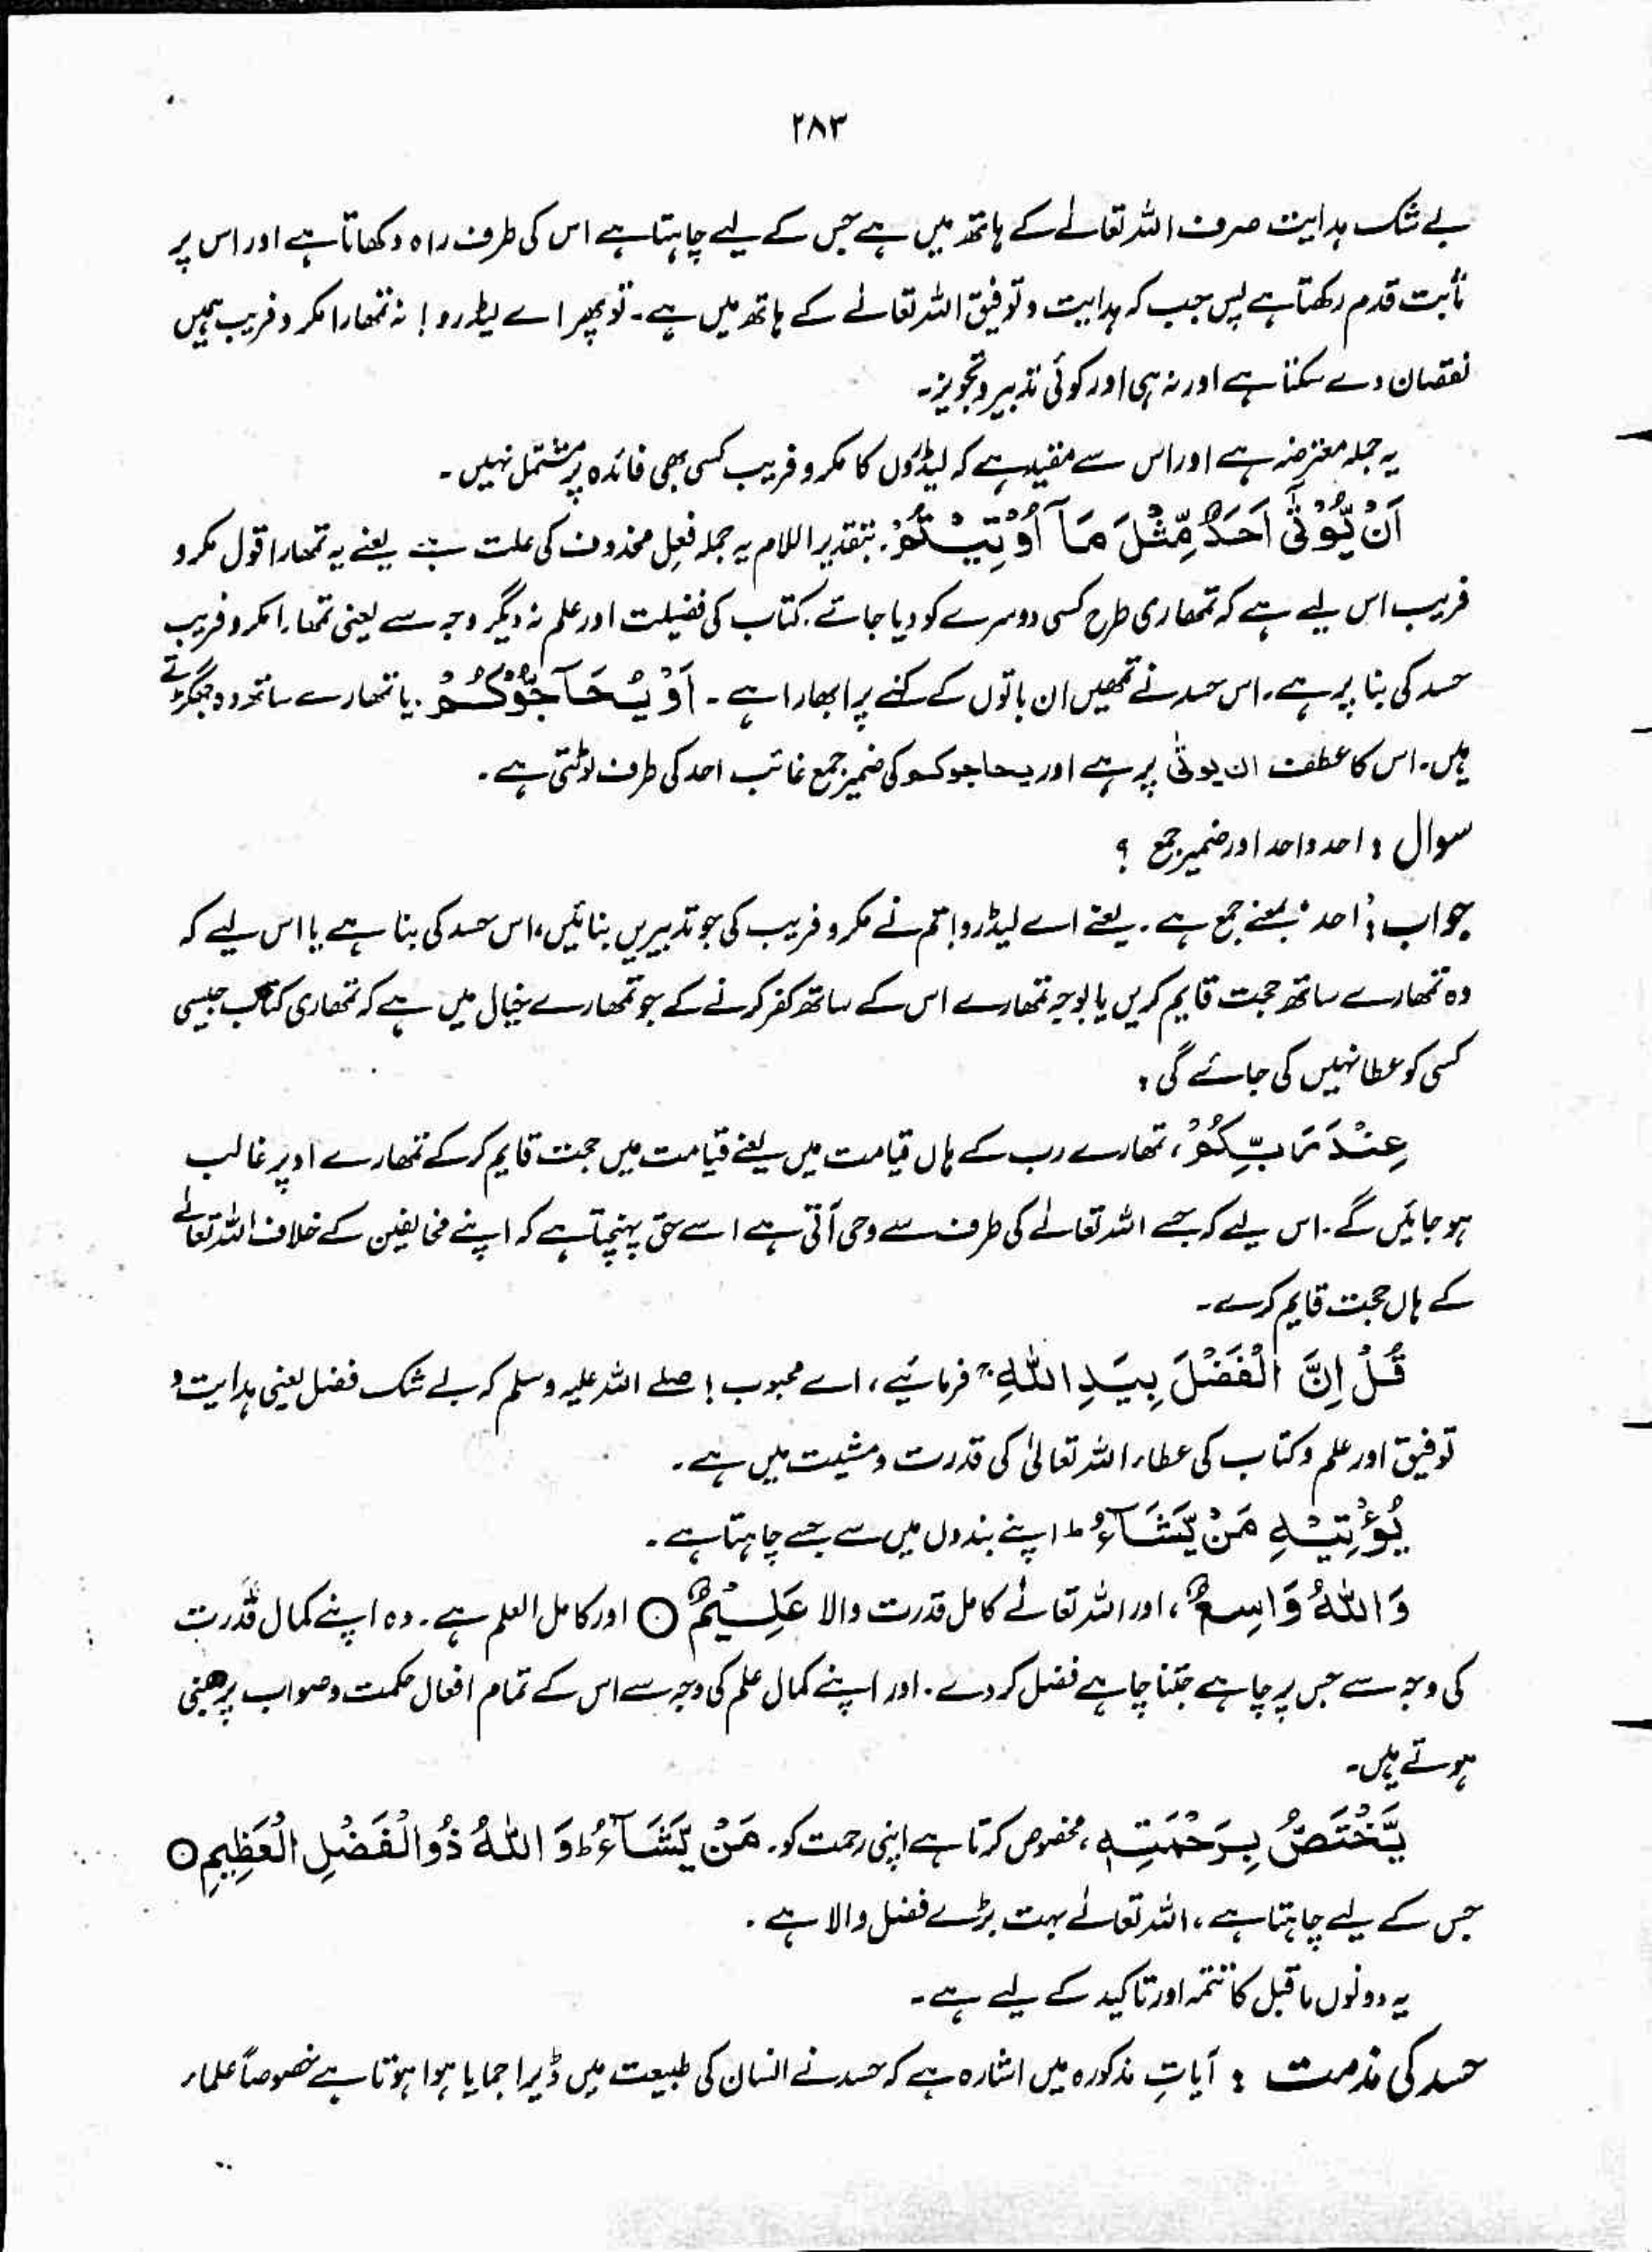 ۲۸۳
بے شک ہدایت صرف اللہ تعالےٰ کے ہاتھ میں ہے جس کے لیے چاہتا ہے اس کی طرف راہ دکھاتا ہے اور اس پر
ثابت قدم رکھتا ہے پس جب کہ ہدایت و توفیق اللہ تعالےٰ کے ہاتھ میں ہے۔ تو پھر اے لیڈرو! نہ تمھارا مکر و فریب ہمیں
نقصان دے سکتا ہے اور نہ ہی اور کوئی تدبیر و تجویز۔
یہ جملہ معترضہ ہے اور اس سے مفید ہے کہ لیڈروں کا مکر و فریب کسی بھی فائدہ پر مشتمل نہیں۔
اَنْ یُّؤْتٰۤی اَحَدٌ مِّثْلَ مَاۤ اُوْتِیْتُمْ۔ بتقدیر اللام یہ جملہ فعل محذوف کی علت ہے یعنے یہ تمھارا قول مکر و
فریب اس لیے ہے کہ تمھاری طرح کسی دوسرے کو دیا جائے۔ کتاب کی فضیلت اور علم نہ دیگر وجہ سے یعنی تمھارا مکر و فریب
حسد کی بنا پر ہے۔ اس حسد نے تمھیں ان باتوں کے کہنے پر ابھارا ہے۔ اَوْ یُحَآجُّوْكُمْ۔ یا تمھارے ساتھ وہ جھگڑتے
ہیں۔ اس کا عطف ان یوتٰی پر ہے اور یحاجوکم کی ضمیر جمع غائب احد کی طرف لوٹتی ہے۔
سوال : احد واحد اور ضمیر جمع ؟
جواب : احد بمعنے جمع ہے۔ یعنے اے لیڈرو! تم نے مکر و فریب کی جو تدبیریں بنائیں، اس حسد کی بنا ہے یا اس لیے کہ
وہ تمھارے ساتھ حجت قایم کریں یا بوجہ تمھارے اس کے ساتھ کفر کرنے کے جو تمھارے خیال میں ہے کہ تمھاری کتاب جیسی
کسی کو عطا نہیں کی جائے گی :
عِنْدَ رَبِّكُمْ، تمھارے رب کے ہاں قیامت میں یعنے قیامت میں حجت قایم کرکے تمھارے اوپر غالب
ہو جائیں گے۔ اس لیے کہ جسے اللہ تعالےٰ کی طرف سے وحی آتی ہے اسے حق پہنچتا ہے کہ اپنے مخالفین کے خلاف اللہ تعالےٰ
کے ہاں حجت قایم کرے۔
قُلْ اِنَّ الْفَضْلَ بِیَدِ اللّٰهِ ۚ فرمائیے، اے محبوب! صلے اللہ علیہ وسلم کہ بے شک فضل یعنی ہدایت و
توفیق اور علم و کتاب کی عطاء اللہ تعالیٰ کی قدرت و مشیت میں ہے۔
یُؤْتِیْهِ مَنْ یَّشَآءُ ؕ اپنے بندوں میں سے جسے چاہتا ہے۔
وَاللّٰهُ وَاسِعٌ، اور اللہ تعالےٰ کامل قدرت والا عَلِیْمٌ ○ اور کامل العلم ہے۔ وہ اپنے کمال قدرت
کی وجہ سے جس پر چاہے جتنا چاہے فضل کر دے۔ اور اپنے کمال علم کی وجہ سے اس کے تمام افعال حکمت و صواب پر مبنی
ہوتے ہیں۔
یَّخْتَصُّ بِرَحْمَتِهٖ، مخصوص کرتا ہے اپنی رحمت کو۔ مَنْ یَّشَآءُ ؕ وَاللّٰهُ ذُوالْفَضْلِ الْعَظِیْمِ ○
جس کے لیے چاہتا ہے، اللہ تعالےٰ بہت بڑے فضل والا ہے۔
یہ دونوں ماقبل کا تتمہ اور تاکید کے لیے ہے۔
حسد کی مذمت : آیاتِ مذکورہ میں اشارہ ہے کہ حسد نے انسان کی طبیعت میں ڈیرا جمایا ہوا ہوتا ہے خصوصاً علماء